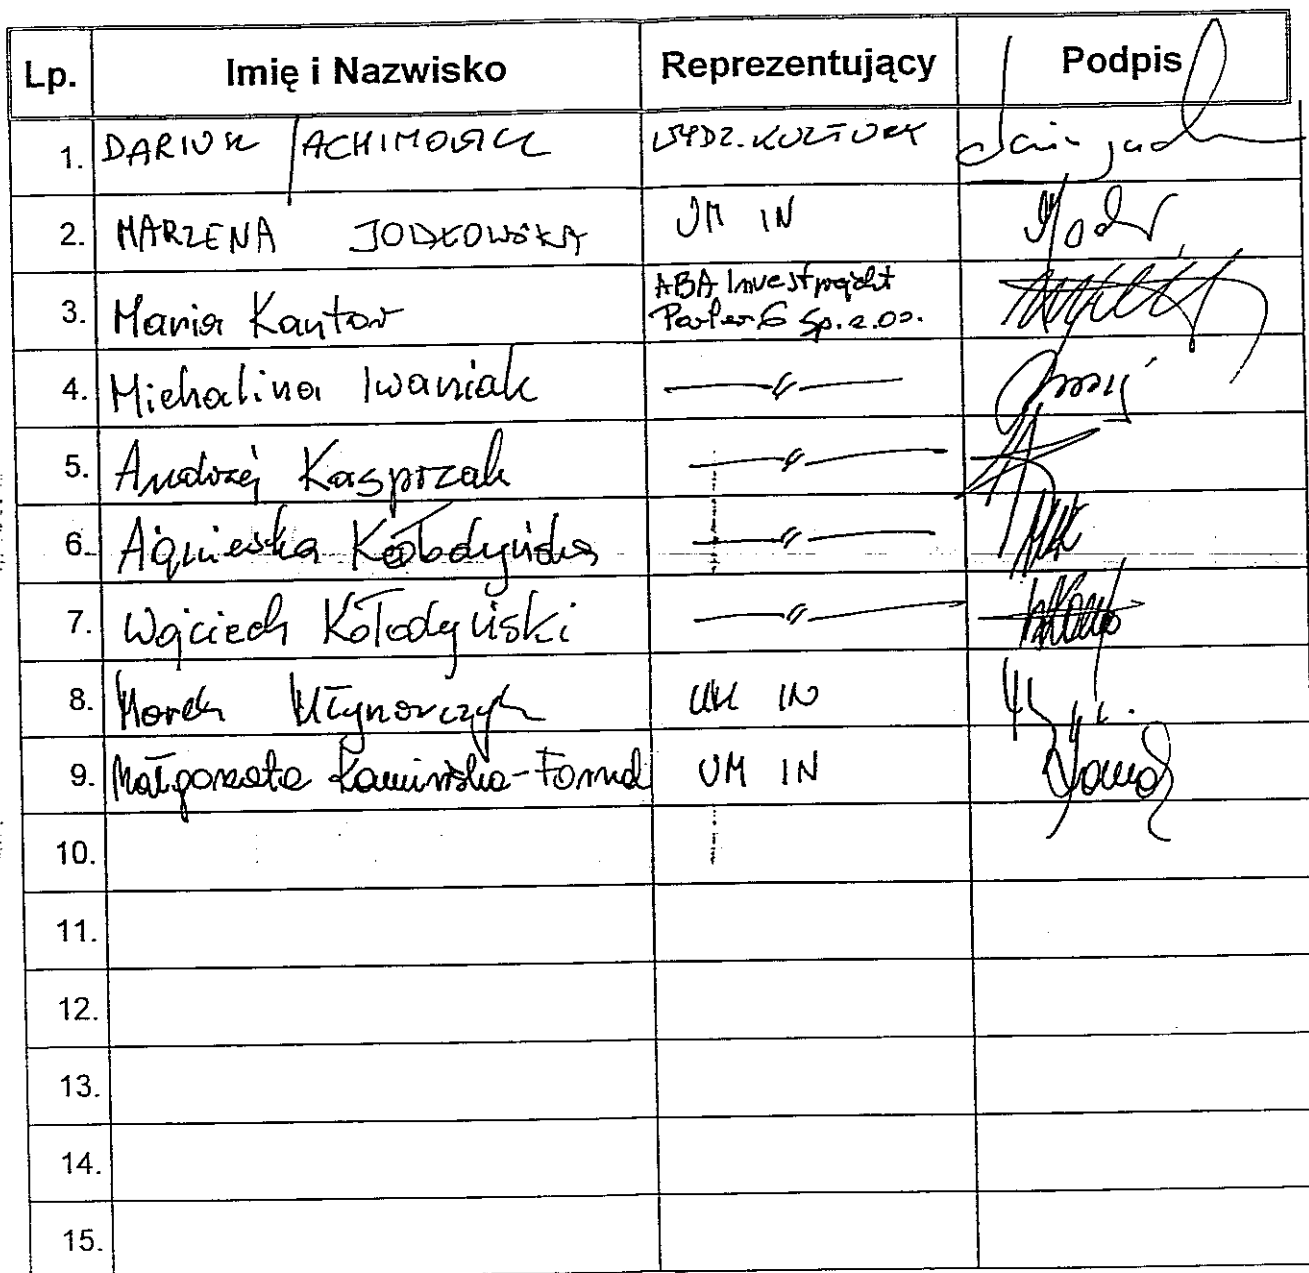 Lp. Imię i Nazwisko Reprezentujący Podpis
1. DARIUSZ JACHIMOWICZ WYDZ. KULTURY
2. MARZENA JODŁOWSKA UM IN
3. Maria Kantor ABA Investprojekt
Parter 6 Sp. z.oo.
4. Michalina Iwaniak —〃—
5. Andrzej Kasprzak —〃—
6. Agnieszka Kołodyńska —〃—
7. Wojciech Kołodyński —〃—
8. Marek Młynarczyk UM IN
9. Małgorzata Kamińska- UM IN
10.
11.
12.
13.
14.
15.